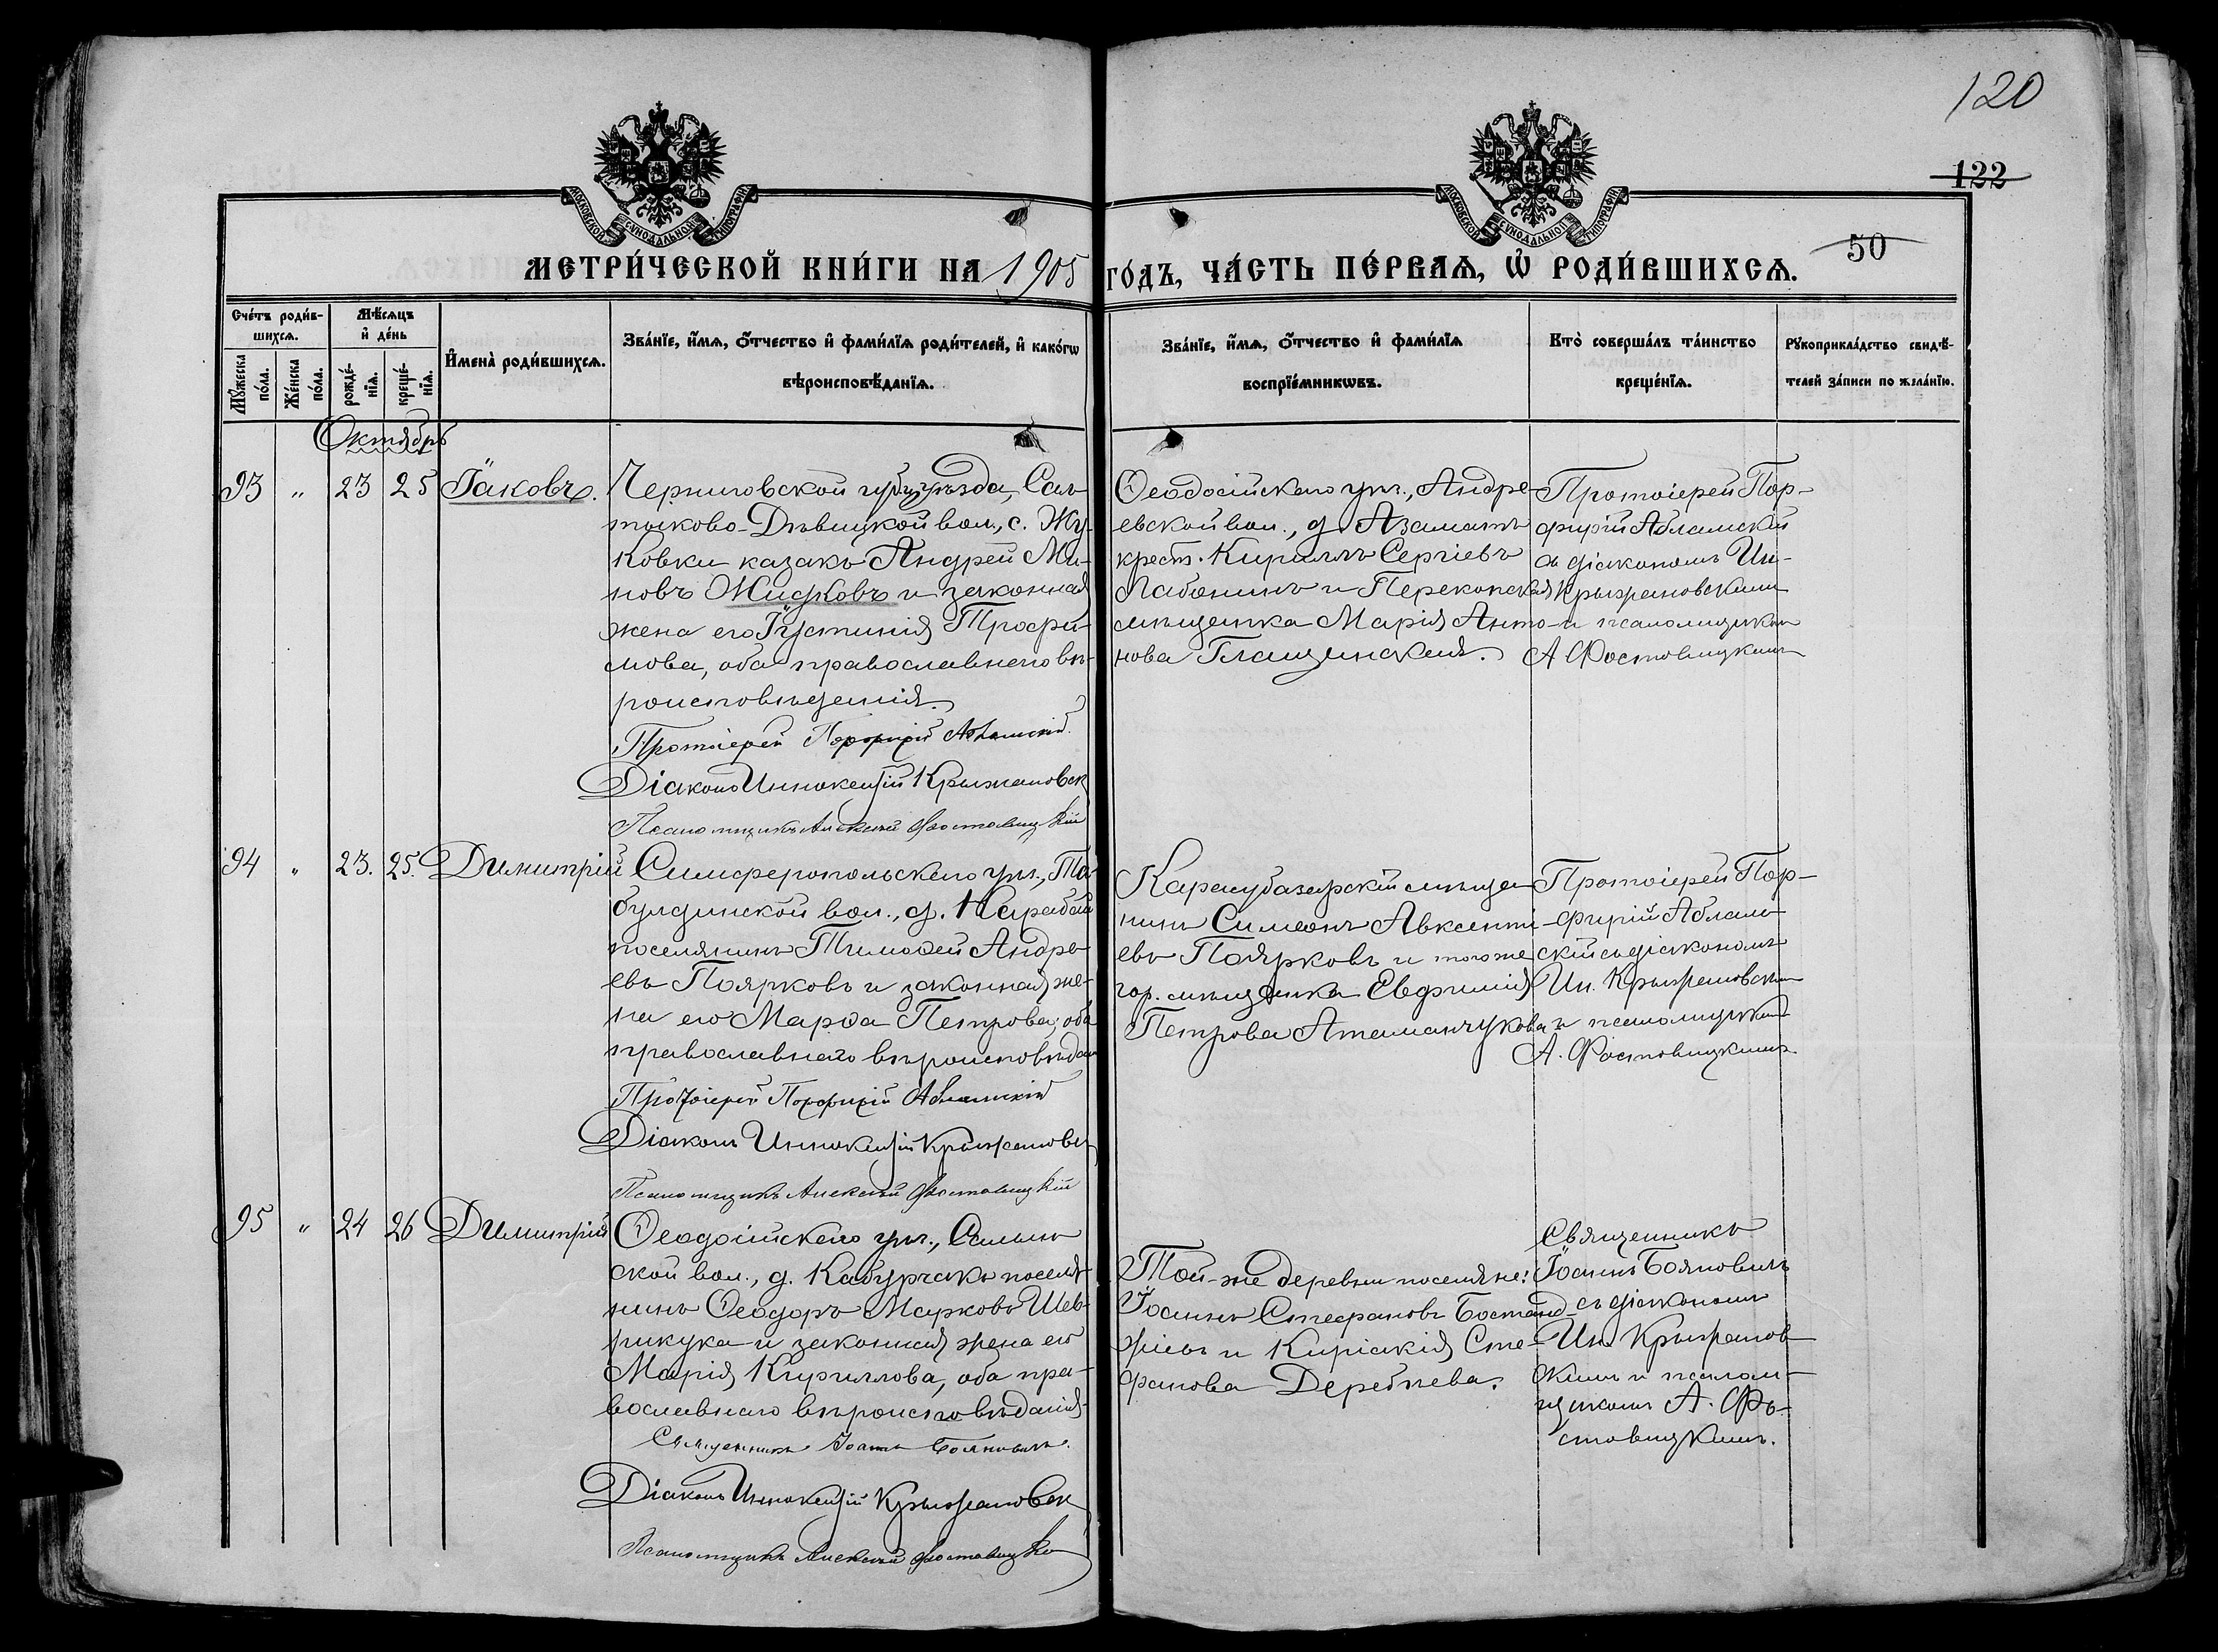 120
122
50
МОСКОВСКОЙ СѴНОДАЛЬНОЙ ТИПОГРАФІИ
МОСКОВСКОЙ СѴНОДАЛЬНОЙ ТИПОГРАФІИ
МЕТРИ́ЧЕСКОЙ КНИ́ГИ НА 1905 ГО́ДЪ, ЧА́СТЬ ПЕ́РВАѦ, Ѡ҆ РОДИ́ВШИХСѦ.
Сче́тъ роди́в-
шихсѧ.
Мꙋ́жеска по́ла.
Же́нска по́ла.
Мѣ́сѧцъ
и҆ де́нь
рожде́-
нїѧ.
креще́-
нїѧ.
И҆мена̀ роди́вшихсѧ.
Зва́нїе, и҆́мѧ, ѻ҆́тчество и҆ фами́лїѧ роди́телей, и҆ како́гѡ
вѣроисповѣ́данїѧ.
Зва́нїе, и҆́мѧ, ѻ҆́тчество и҆ фами́лїѧ
воспрїе́мникѡвъ.
Кто̀ соверша́лъ та́инство
креще́нїѧ.
Рꙋкоприкла́дство свидѣ́-
телей за́писи по жела́нїю.
Октябрь
93 " 23 25 Іаковъ.
Черниговской губ. уѣзда, Сал-
тыково-Дѣвицкой вол., с. Жу-
ковки казакъ Андрей Ми-
новъ Жидковъ и законная
жена его Іустинія Трофи-
мова, оба православнаго вѣ-
роисповѣданія.
Протоіерей Порфирій Абламскій
Діаконъ Иннокентій Крыжановск
Псаломщикъ Алексѣй Фостовицкій
Ѳеодосійскаго уѣз., Андре-
евской вол., д. Азаматъ
крест. Кириллъ Сергіевъ
Лабонинъ и Перекопская
мѣщанка Марія Анто-
нова Глащинская.
Протоіерей Пор-
фирій Абламскій
съ діакономъ Ин-
Крыжановскимъ
и псаломщикомъ
А. Фостовицкимъ
94 " 23. 25. Димитрій
Симферопольскаго уѣз., Та-
булдинской вол., д. Карабай
поселянинъ Тимоѳей Андре-
евъ Поярковъ и законная же-
на его Марѳа Петрова, оба
православнаго вѣроисповѣдан
Протоіерей Порфирій Абламскій
Діаконъ Иннокентій Крыжановск
Псаломщикъ Алексѣй Фостовицкій
Карасубазарскій мѣща-
нинъ Симеонъ Авксенті-
евъ Поярковъ и того же
гор. мѣщанка Евфимія
Петрова Атаманчукова
Протоіерей Пор-
фирій Аблам-
скій съ діакономъ
Ин. Крыжановскимъ
и псаломщикомъ
А. Фостовицкимъ
95 " 24 26 Димитрій
Ѳеодосійскаго уѣз., Салын-
ской вол., д. Кабурчакъ поселя-
нинъ Ѳеодоръ Марковъ Шев-
рикука и законная жена его
Марія Кириллова, оба пра-
вославнаго вѣроисповѣданія
Священникъ Іоаннъ Бояновичъ.
Діаконъ Иннокентій Крыжановск
Псаломщикъ Алексѣй Фостовицкі
Той-же деревни поселяне:
Іоаннъ Стефановъ Бостанд-
жіевъ и Киріакія Сте-
фанова Деребчева.
Священникъ
Іоаннъ Бояновичъ
съ діакономъ
Ин. Крыжанов-
скимъ и псалом-
щикомъ А. Фо-
стовицкимъ.